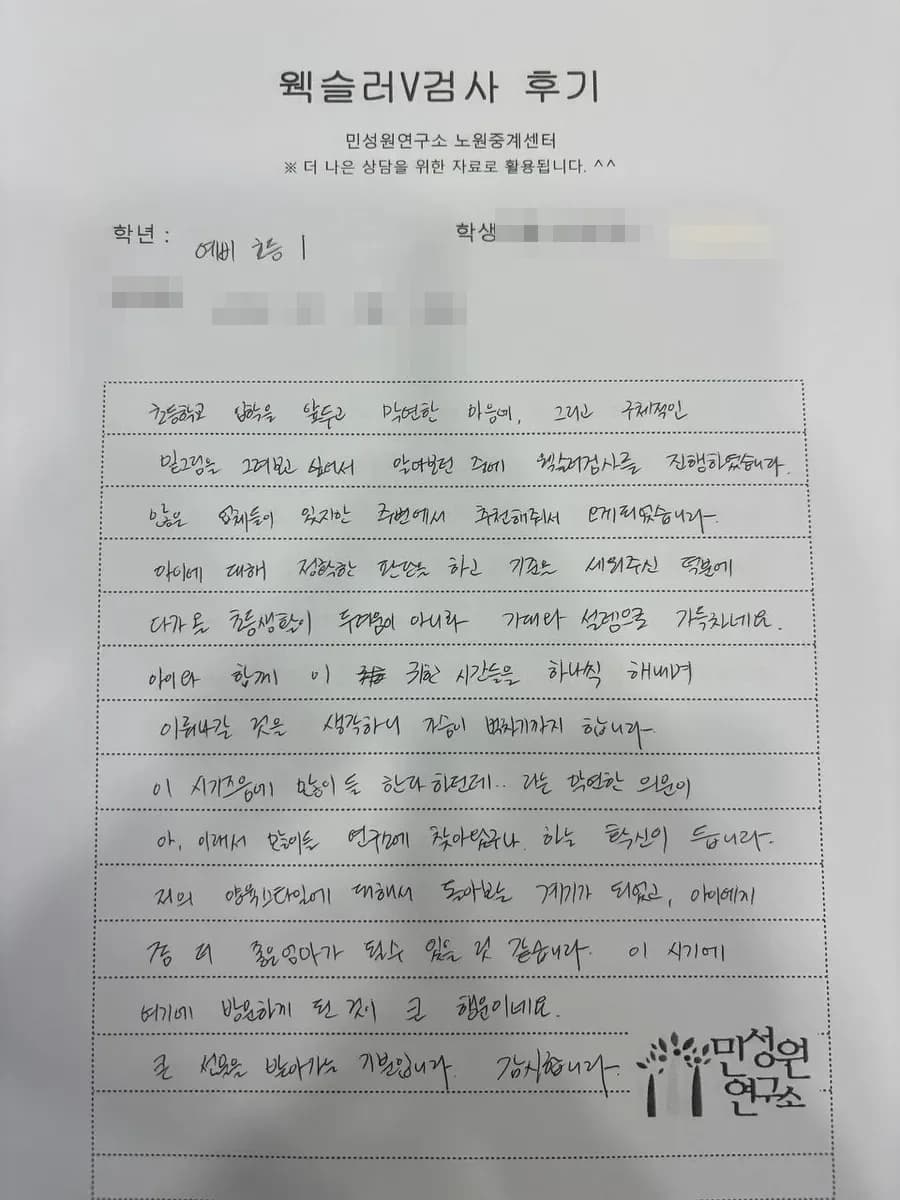 웩슬러V검사 후기
민성원연구소 노원중계센터
※ 더 나은 상담을 위한 자료로 활용됩니다. ^^
학년 : 예비 초등 1
학생
초등학교 입학을 앞두고 막연한 마음에, 그리고 구체적인
밑그림을 그려보고 싶어서 알아보던 중에 웩슬러검사를 진행하였습니다.
많은 업체들이 있지만 주변에서 추천해줘서 오게되었습니다.
아이에 대해 정확한 판단을 하고 기준을 세워주신 덕분에
다가올 초등생활이 두려움이 아니라 기대와 설렘으로 가득차네요.
아이와 함께 이 귀한 시간들을 하나씩 해내며
이뤄나갈 것을 생각하니 가슴이 벅차기까지 합니다.
이 시기즈음에 많이들 한다하던데.. 라는 막연한 의문이
아, 이래서 많이들 연구소에 찾아왔구나 하는 확신이 듭니다.
저의 양육스타일에 대해서 돌아보는 계기가 되었고, 아이에게
좀 더 좋은엄마가 될수 있을 것 같습니다. 이 시기에
여기에 방문하게 된 것이 큰 행운이네요.
큰 선물을 받아가는 기분입니다. 감사합니다.
민성원
연구소